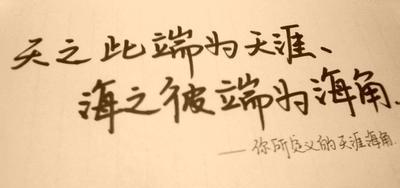 天之此端为天涯、
海之彼端为海角.
——你所定义的天涯海角.